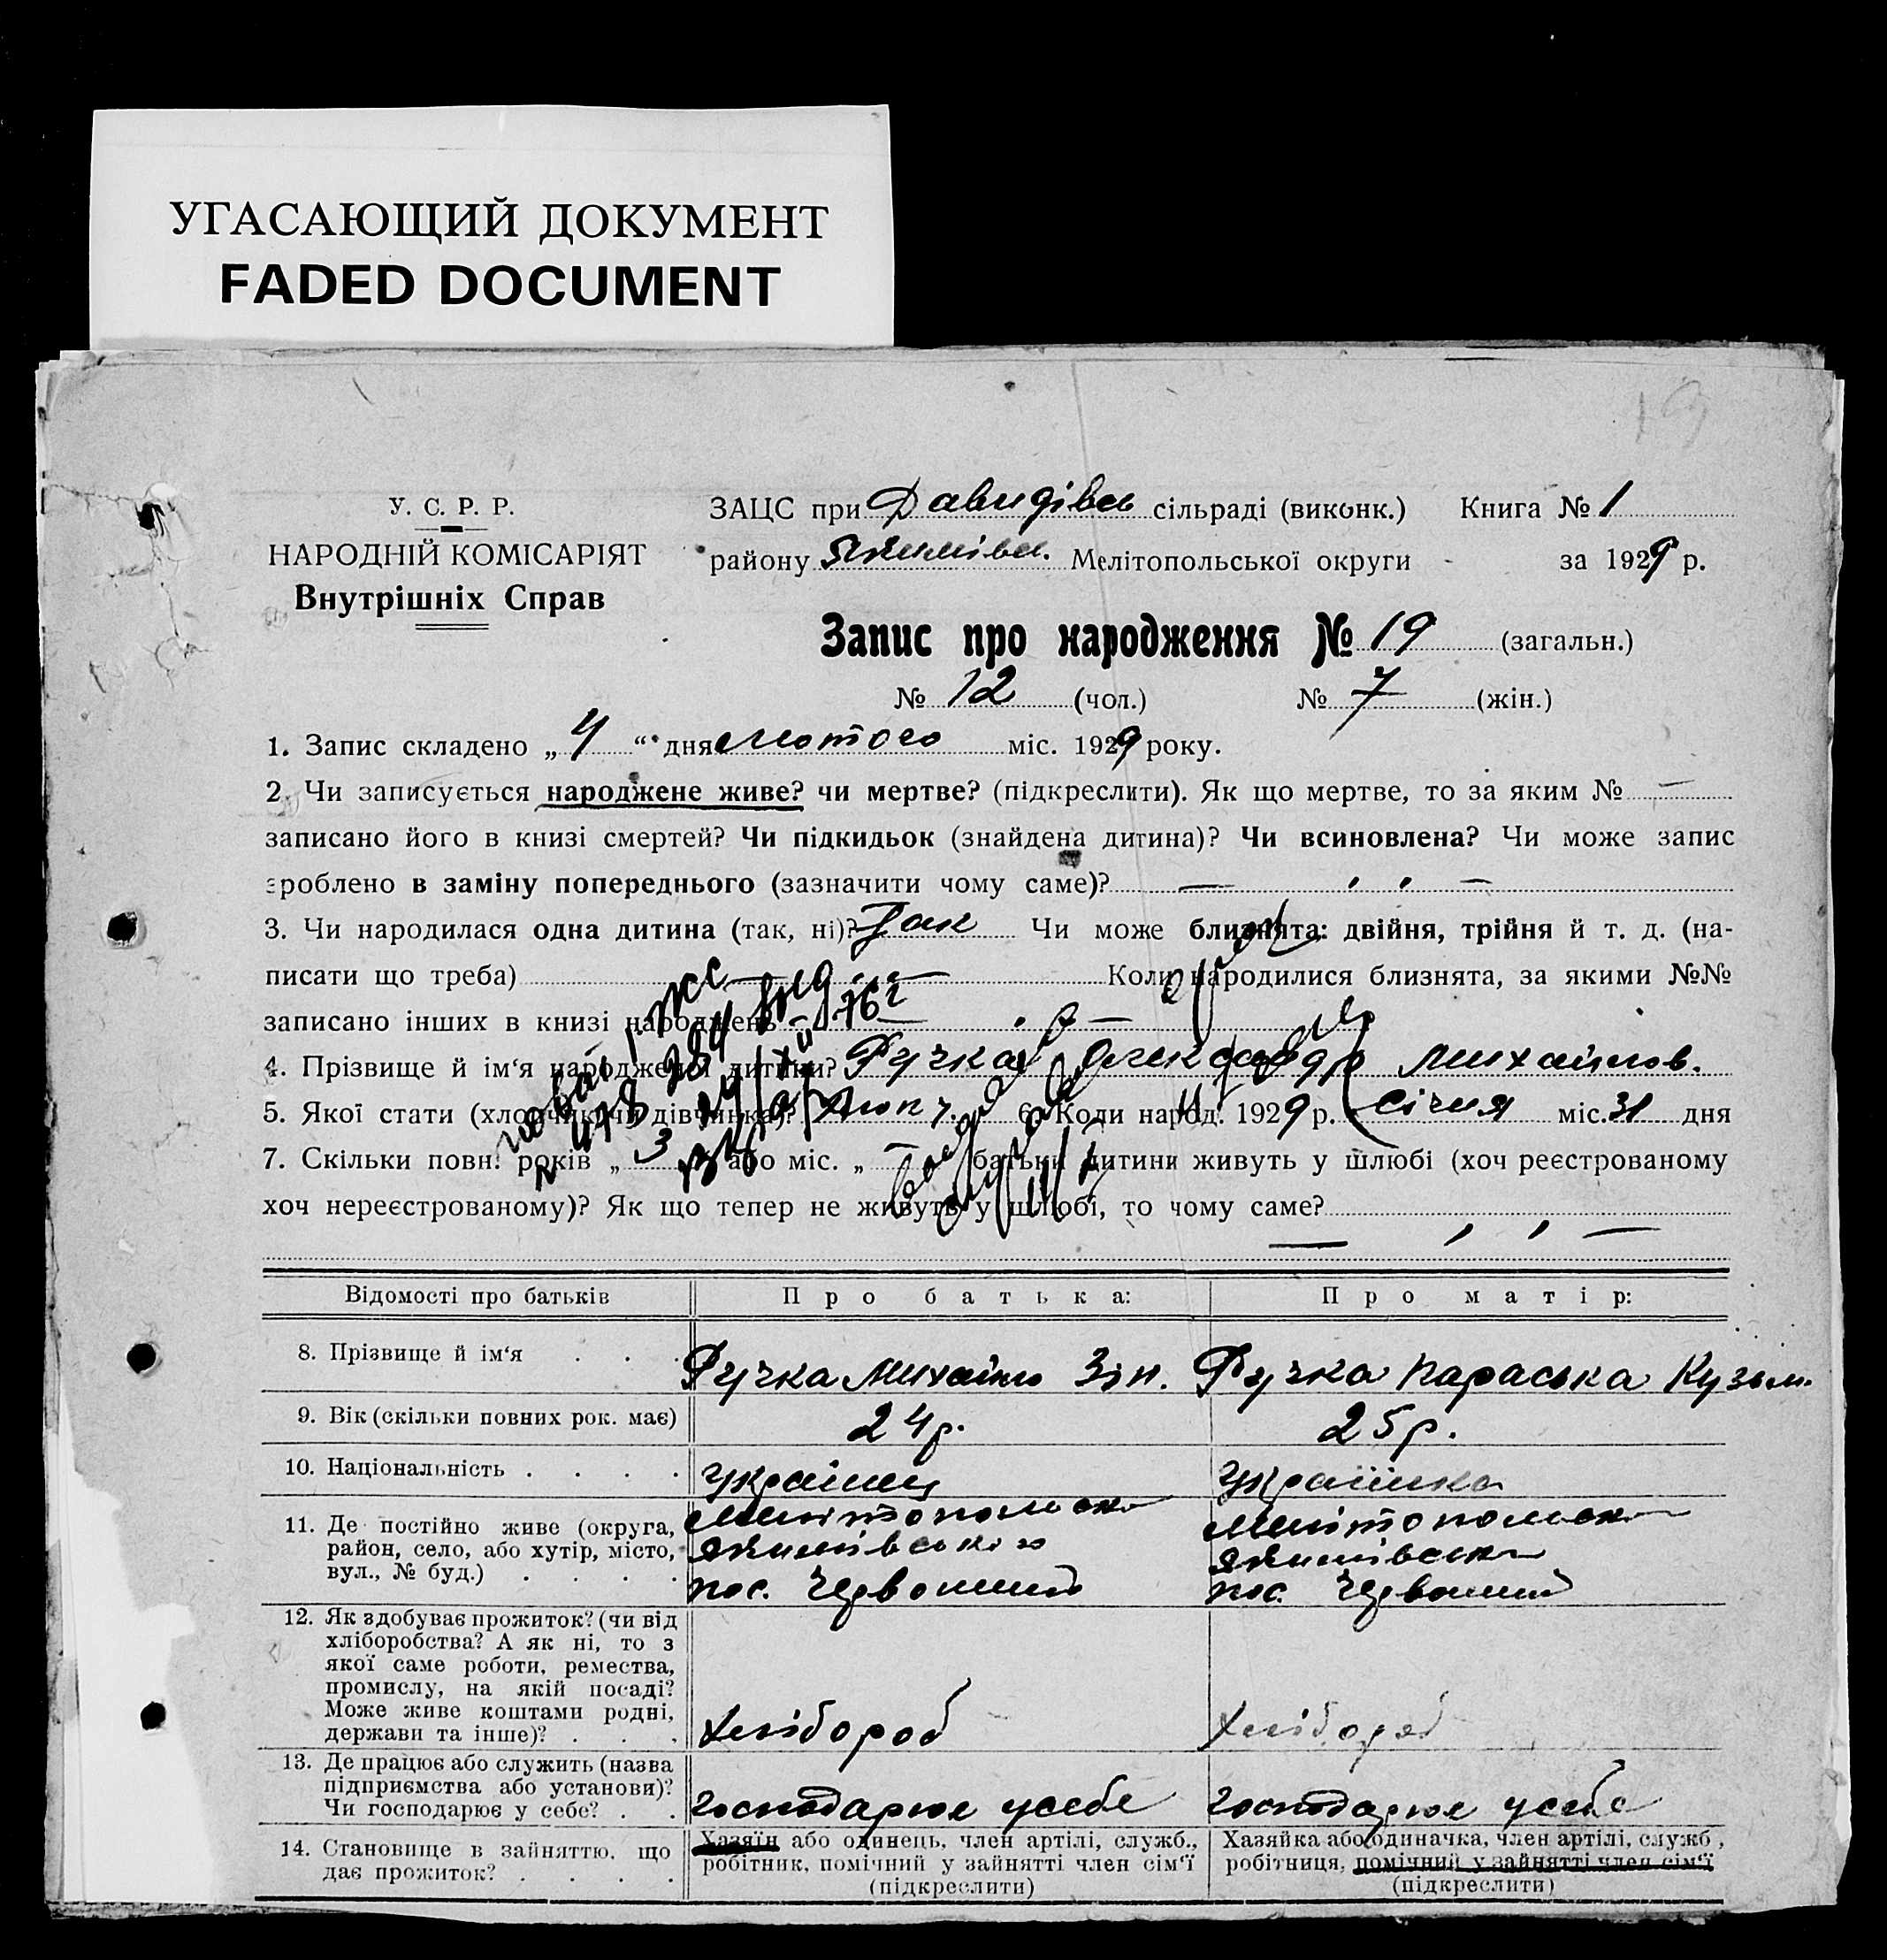 УГАСАЮЩИЙ ДОКУМЕНТ
FADED DOCUMENT
19
У. С. Р. Р.
НАРОДНІЙ КОМІСАРІЯТ
Внутрішніх Справ
ЗАЦС при Давидівськ сільраді (виконк.) Книга № 1
району Якимівськ. Мелітопольської округи за 1929 р.
Запис про народження № 19 (загальн.)
№ 12 (чол.) № 7 (жін.)
1. Запис складено „ 4 “ дня лютого міс. 1929 року.
2. Чи записується народжене живе? чи мертве? (підкреслити). Як що мертве, то за яким № —
записано його в книзі смертей? Чи підкидьок (знайдена дитина)? Чи всиновлена? Чи може запис
зроблено в заміну попереднього (зазначити чому саме)? — , , —
3. Чи народилася одна дитина (так, ні)? Так Чи може близнята: двійня, трійня й т. д. (на-
писати що треба) — Коли народилися близнята, за якими №№
записано інших в книзі народжень
4. Прізвище й ім‘я народженої дитини? Ручка Олександр Михайлов.
5. Якої стати (хлопчик чи дівчинка)? Хлопч. 6. Коли народ. 1929 р. Січня міс. 31 дня
7. Скільки повн. років „ 3 або міс. „ — батьки дитини живуть у шлюбі (хоч реєстрованому
хоч нереєстрованому)? Як що тепер не живуть у шлюбі, то чому саме?
— , , —
Відомості про батьків Про батька: Про матір:
8. Прізвище й ім‘я Ручка Михайло Зін. Ручка Параська Кузьм.
9. Вік (скільки повних рок. має) 24 р. 25 р.
10. Національність Українец Українка
11. Де постійно живе (округа, район, село, або хутір, місто, вул., № буд.)
Мелітопольська
Якимівська
пос. Червоний
Мелітопольська
Якимівська
пос. Червоний
12. Як здобуває прожиток? (чи від
хліборобства? А як ні, то з
якої саме роботи, ремества,
промислу, на якій посаді?
Може живе коштами родні,
держави та інше)? Хлібороб Хлібороб
13. Де працює або служить (назва
підприємства або установи)?
Чи господарює у себе? Господарює у себе Господарює у себе
14. Становище в зайняттю, що
дає прожиток?
Хазяїн або одинець, член артілі, служб.,
робітник, помічний у зайнятті член сім‘ї
(підкреслити)
Хазяйка або одиначка, член артілі, служб,
робітниця, помічний у зайнятті член сім‘ї
(підкреслити)